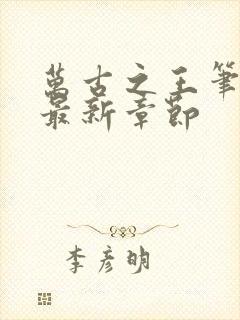 萬古之王筆
最新章節
李彥明